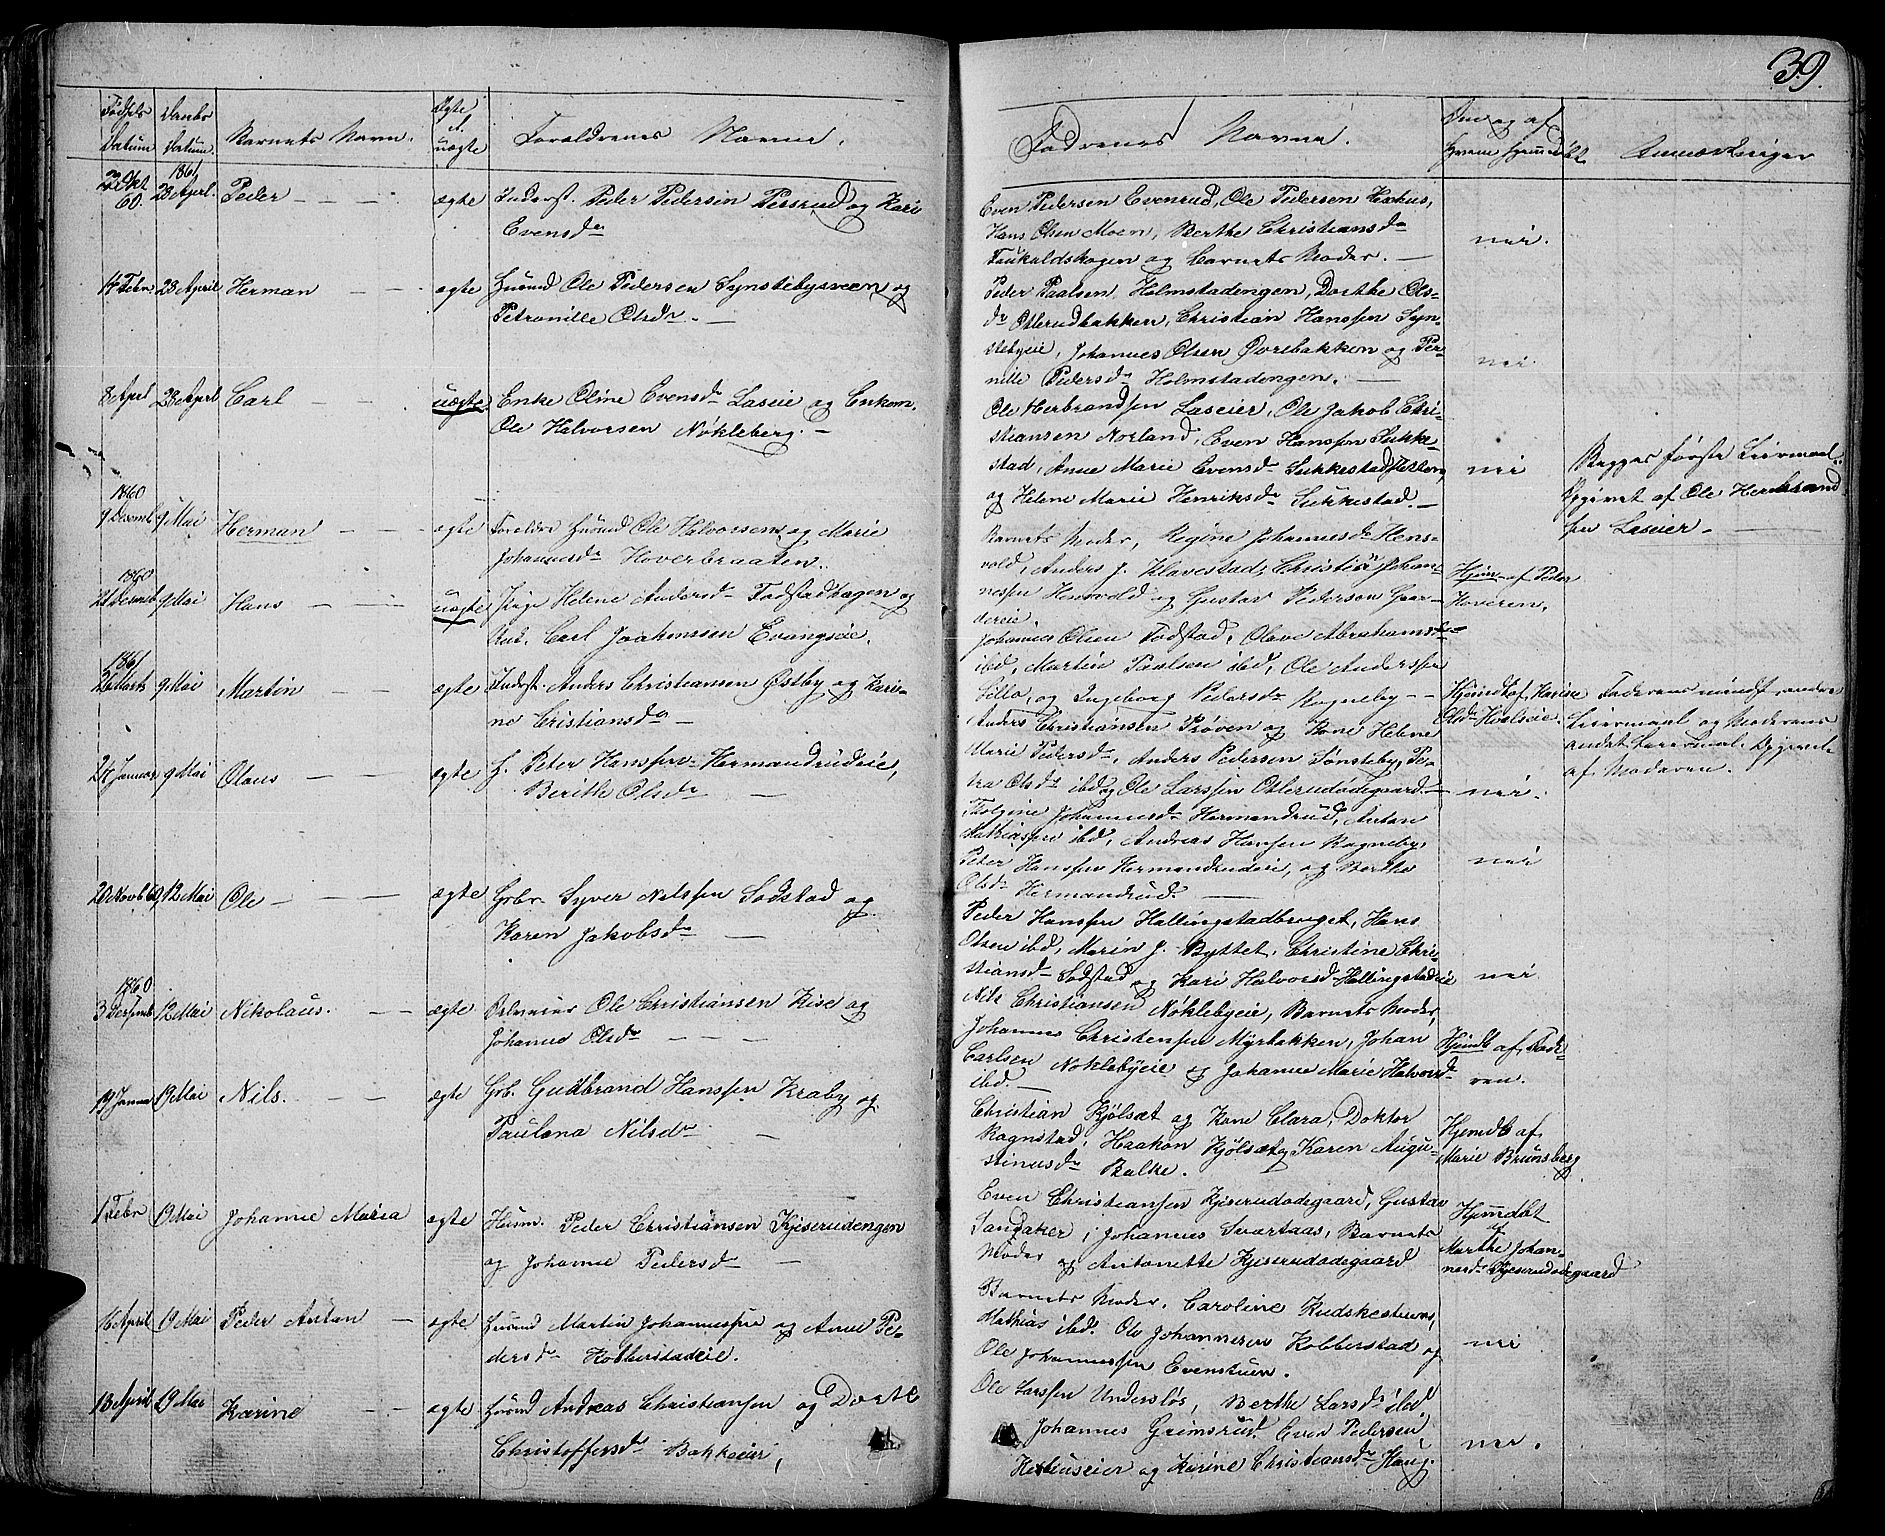 39.
Fødsels Datum
Daabs Datum.
Barnets Navn.
Ægte el. uægte
Foraldrenes Navne.
Fadrenes Navne.
Om og af hvem hjemmedøbt
Anmærkninger
Okt 60.
1861 23 April.
Peder
ægte
Inderst. Peder Pedersen Persrud og Kari
Evensdr
Even Pedersen Evenrud, Ole Pedersen Hexhus,
Hans Olsen Moen, Berthe Christiansdr
Faukaldskogen og Barnets Moder.
nei.
14 Febr.
23 April
Herman
ægte
Huusmd Ole Pedersen Synstebysveen og
Petronille Olsdr.
Peder Paalsen Holmstadengen, Dorthe Ols-
dr Oterudbakken, Christian Hanssen Syn-
stebyeie, Johannes Olsen Øvrebakken og Per-
nille Pedersdr Holmstadengen.
nei
8 April
23 April
Carl
uægte.
Enke Oline Evensdr Laseie og Enkem.
Ole Halvorsen Nøkleberg.
Ole Herbrandsen Laseier, Ole Jakob Chri-
stiansen Norland, Even Hanssen Sukke-
stad, Anne Marie Evensdr Sukkestad
og Helene Marie Henriksdr Sukkestad.
nei
Begges første Leiermaal.
Opgivet af Ole Herbrand
sen Laseier.
1860
9 Desemb
9 Mai
Herman
ægte
Foreldre Huusmd Ole Halvorsen og Marie
Johannesdr Hoverbraaten.
Barnets Moder, Regine Johannesdr Hens-
vold, Anders J. Klavestad, Christian Johan-
nessen Hensvold og Gustav Pedersen Gaar-
dereie
Hjem- af Peder
Hoveren.
1860
21 Desemb
9 Mai
Hans
uægte
Pige Helene Andersdr Fodstadhagen og
Ent. Carl Joakimssen Evangsøie.
Johannes Olsen Fodstad, Olave Abrahamsdr
ibd, Martin Paalsen ibd, Ole Anderssen
Lilla, og Ingeborg Pedersdr Rogneby
Hjemdt af Karine
Olsdr Hoelseie.
Faderens andre
Leiermaal og Moderens
andet Leiermaal. Opgivet
af Moderen.
1861
26 Marts
9 Mai
Martin
ægte
Inderst. Anders Christiansen Østby og Kari-
ne Cristiansdr
Anders Christiansen Prøven og Kone Helene
Marie Pedersdr, Anders Pedersen Sønsteby, Pe-
tra Olsdr ibd og Ole Larssen Oterudødegaard.
nei.
24 Januar
9 Mai
Olaus
ægte
H. Peter Hanssen Hermandrudeie,
Berithe Olsdr
Tholgine Johannesdr Hermandrud, Anton
Mathiassen ibd, Andreas Hansen Rogneby,
Peter Hanssen Hermandrudeie, og Berthe
Olsdr Hermandrud.
nei
20 Novb 60
12 Mai
Ole
ægte
Grbr. Syver Nilssen Sodstad og
Karen Jakobsdr
Peder Hanssen Hallingstadbruget, Hans
Olsen ibd, Marin J. Byttet, Christine Chri-
stiansdr Sodstad og Kari Halvorsd Hallingstadeie
nei
1860
3 Desemb
12 Mai
Nikolaus.
ægte
Ole Christiansen Kise og
Johanne Olsdr
Nils Christiansen Nøklebyeie, Barnets Moder,
Johannes Christensen Myrbakken, Johan
Carlsen Noklebyeie og Johanne Marie Halvorsdr
ibd.
Hjemdt af Fade-
ren.
19 Janua
19 Mai
Nils.
ægte
Grb. Gudbrand Hanssen Kraby og
Paulena Nilsdr
Christian Kjølsæt og Kone Clara, Doktor
Ragnstad, Haakon Kjølsæt og Karen Augu-
stinusdr Balke.
Hjemdb af
Marie Brunsberg
1 Febr
19 Mai
Johanne Maria
ægte
Husm. Peder Christiansen Kjeserudengen
og Johanne Pedersdr
Even Christiansen Kjeserudødegaard, Gustav
Sangaker, Johannes Svartaas, Barnets
Moder og Antonette Kjeserudødegaard
Hjemdøbt
af
Marthe Johan-
nesdr Kjeserudødegaard
16 April
19 Mai
Peder Anton
ægte
Huusmd Martin Johannessen og Anne Pe-
dersdr Kobberstadeie.
Barnets Moder, Caroline Kudskestuen,
Mathias ibd. Ole Johannesen Kobberstad og
Ole Johannessen Evenstuen.
nei
13 April
19 Mai
Karine
ægte
Huusmd Andreas Christiansen og Dorte
Christoffersdr Bakkeeier,
Ole Larssen Undersløs, Berthe Larsdr ibd
Johannes Grimsrud. Even Pedersen
Hexhuseier og Karine Christiansdr Haug.
nei.